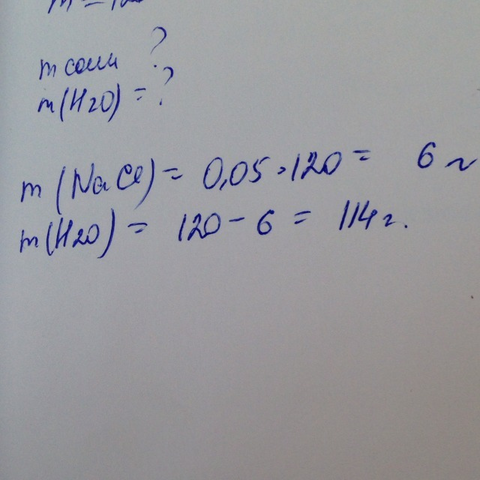 m = 120
m соли ?
m(H2O) = ?
m(NaCl) = 0,05 · 120 = 6 г
m(H2O) = 120 - 6 = 114 г.